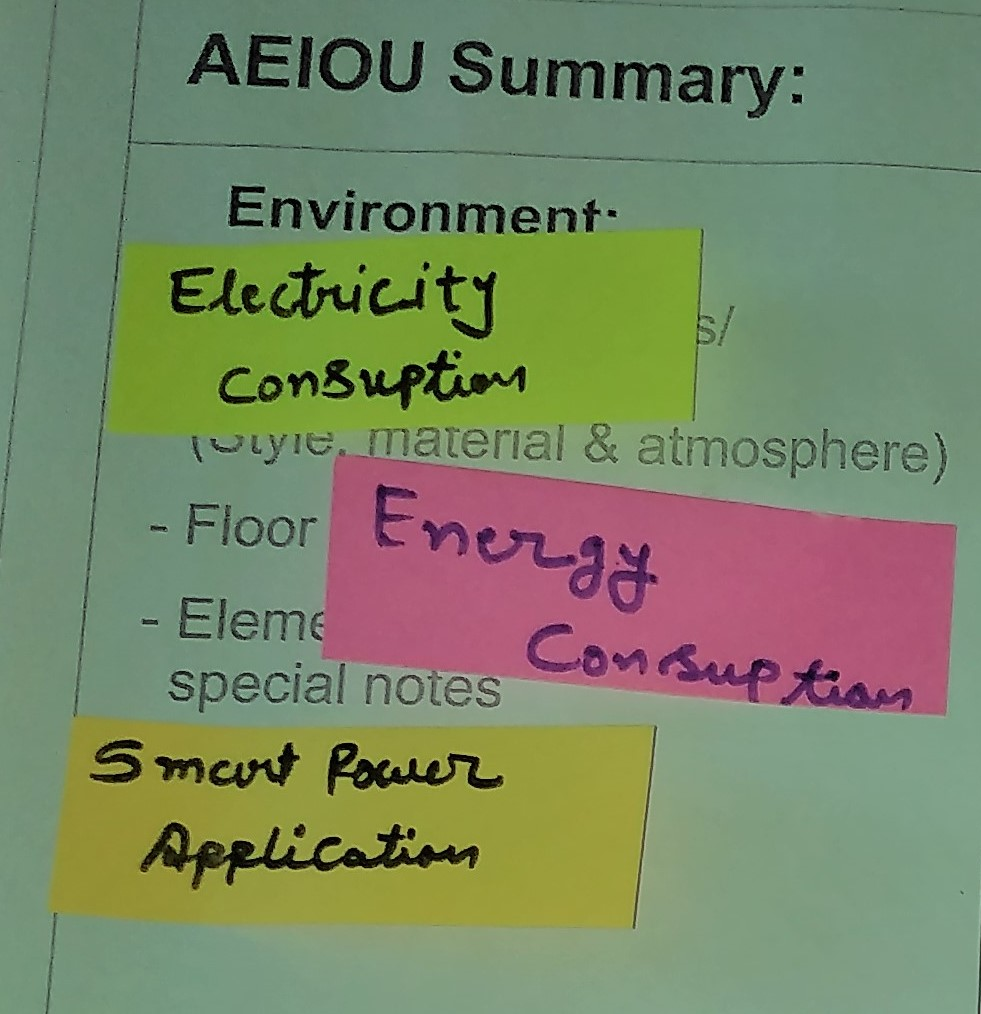 AEIOU Summary:
Environment:
Electricity
Consuption
s/
(Style, material & atmosphere)
- Floor
Energy
Consuption
- Eleme
special notes
Smart Power
Application